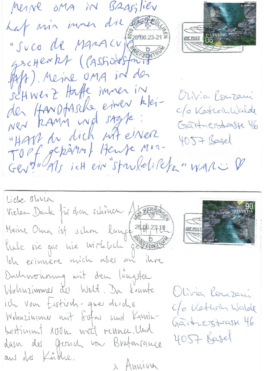 Meine OMA in BRASILIEN
hat mir immer
"SUCO DE MARACUJA"
geschenkt (PASSIONSFRUIT
Saft). Meine OMA in der
SCHWEIZ hatte immer in
der HANDTASCHE einen klei-
nen KAMM und sagte:
"HAST du dich mit einem
TOPF gekämmt Heute MOR-
GEN?" als ich ein WAR ♡
Olivia Ronzani
c/o Kathrin
Gärtnerstrasse 46
4057 Basel
90
Liebe Olivia
Vielen Dank für den schönen
Meine Oma ist schon lange
habe sie gar nie wirklich
Ich erinnere mich aber an ihre
Dachwohnung mit dem längsten
Wohnzimmer der Welt. Da konnte
ich vom Esstisch quer durchs
Wohnzimmer mit Sofas und
100m weit rennen. Und
dann der Geruch von Bratensauce
aus der Küche.
x Annina
Olivia Ronzani
c/o Kathrin
Gärtnerstrasse 46
4057 Basel
90